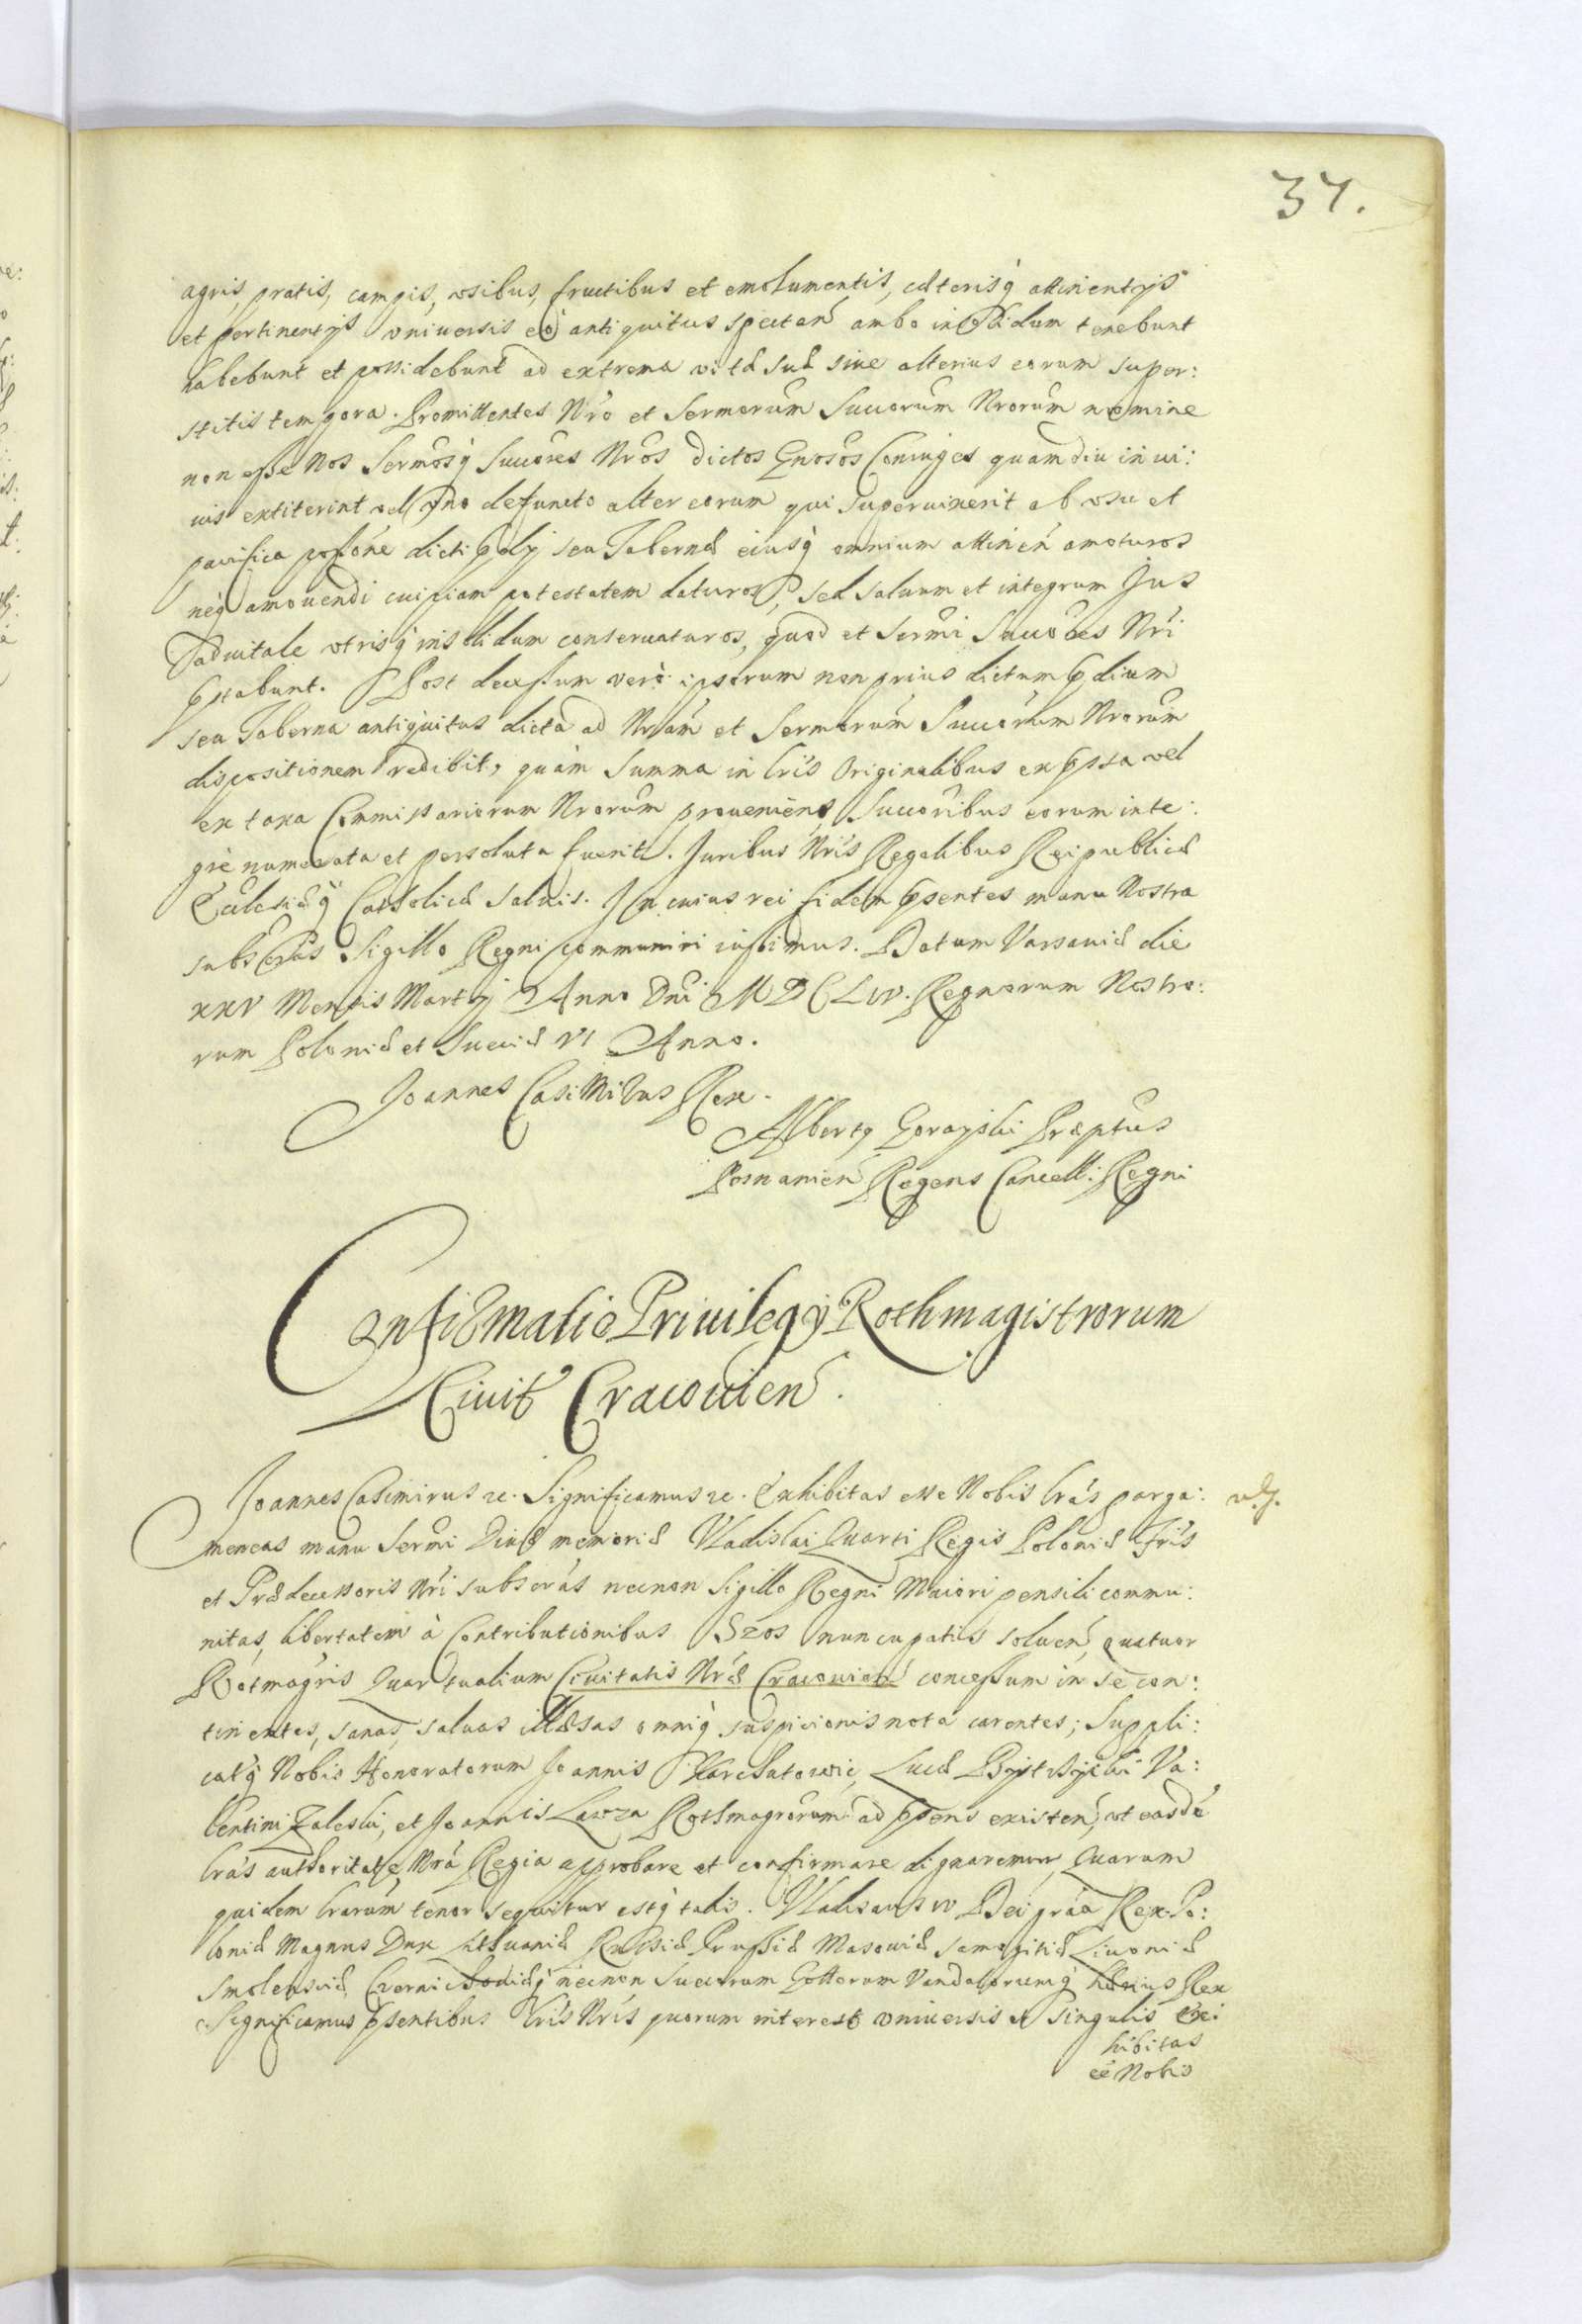 37.
agris, pratis, campis, vsibus, fructibus et emolumentis, cæterisq́ attinentijs
et pertinentijs vniuersis eo antiquitus spectan̄ ambo insolidum tenebunt
habebunt et possidebunt ad extrema vitæ suæ siue alterius eorum super:
stitis tempora. Promittentes Nr̃o et Sermorum Succorum Nrorum nomine
non esse Nos Sermosq́ Succores Nros dictos Gnosos Coniuges quamdiu in vi:
uis extiterint vel vno defuncto alter eorum qui superuixerit ab vsu et
pacifica possōne dicti p̃dij seu Tabernæ eiusq́ omnium attinen̄ amoturos
neq́ amouendi cuipiam potestatem daturos, sed saluum et integrum Jus
aduitale vtrisq́ insolidum conseruaturos, quod et Sermi Succores Nri
p̃stabunt. Post decessum verò ipsorum non prius dictum p̃dium
seu Taberna antiquitus dicta ad Nram et Sermorum Succorum Nrorum
dispositionem redibit, quàm summa in lris Originalibus exp̃ssa vel
ex taxa Commissariorum Nrorum proueniens, Succoribus eorum inte:
grè numerata et persoluta fuerit. Juribus Nris Regalibus Reipublicæ
Ecclesiæq́ Catholicæ saluis. In cuius rei fidem p̃sentes manu Nostra
subscras Sigillo Regni communiri iussimus. Datum Varsauiæ die
XXV Mensis Martij Anno Dni MDCLIV. Regnorum Nostro:
rum Poloniæ et Sueciæ VI Anno.
Joannes Casimirus Rex.
Albertq Gorayski Præptus
Posnanien̄ Regens Cancell: Regni
Confirmatio Priuilegij Rothmagistrorum
Ciuit Cracouien̄.
Joannes Casimirus &c. Significamus &c. Exhibitas esse Nobis lrás parga:
meneas manu Sermi Diuæ memoriæ Vladislai Quarti Regis Poloniæ Fris
et Prædecessoris Nri subscrás necnon Sigillo Regni Maiori pensili commu:
nitas, libertatem à Contributionibus Szos nuncupatis soluen̄, quatuor
Rotmagris Quartualium Ciuitatis Nræ Cracouien̄ concessum in se con:
tinentes, sanas, saluas illæsas omniq́ suspicionis nota carentes; Suppli:
catq́ Nobis Honoratorum Joannis Lucæ Va:
lentini Zaleski, et Joannis Rothmagrorum ad p̃sens existen̄, vt easdẽ
lrás authoritate Nrá Regia approbare et confirmare dignaremur, Quarum
quidem lrarum tenor sequitur estq́ talis. Vladislaus IV Dei grá Rex Po:
loniæ Magnus Dux Lithuaniæ Russiæ Prussiæ Masouiæ Samogitiæ Liuoniæ
Smolensciæ Czernichouiæq́ necnon Suecorum Gottorum Vandalorumq́ hærius Rex
Significamus p̃sentibus lris Nris quorum interest vniuersis et singulis Ex:
hibitas
eẽ Nobis